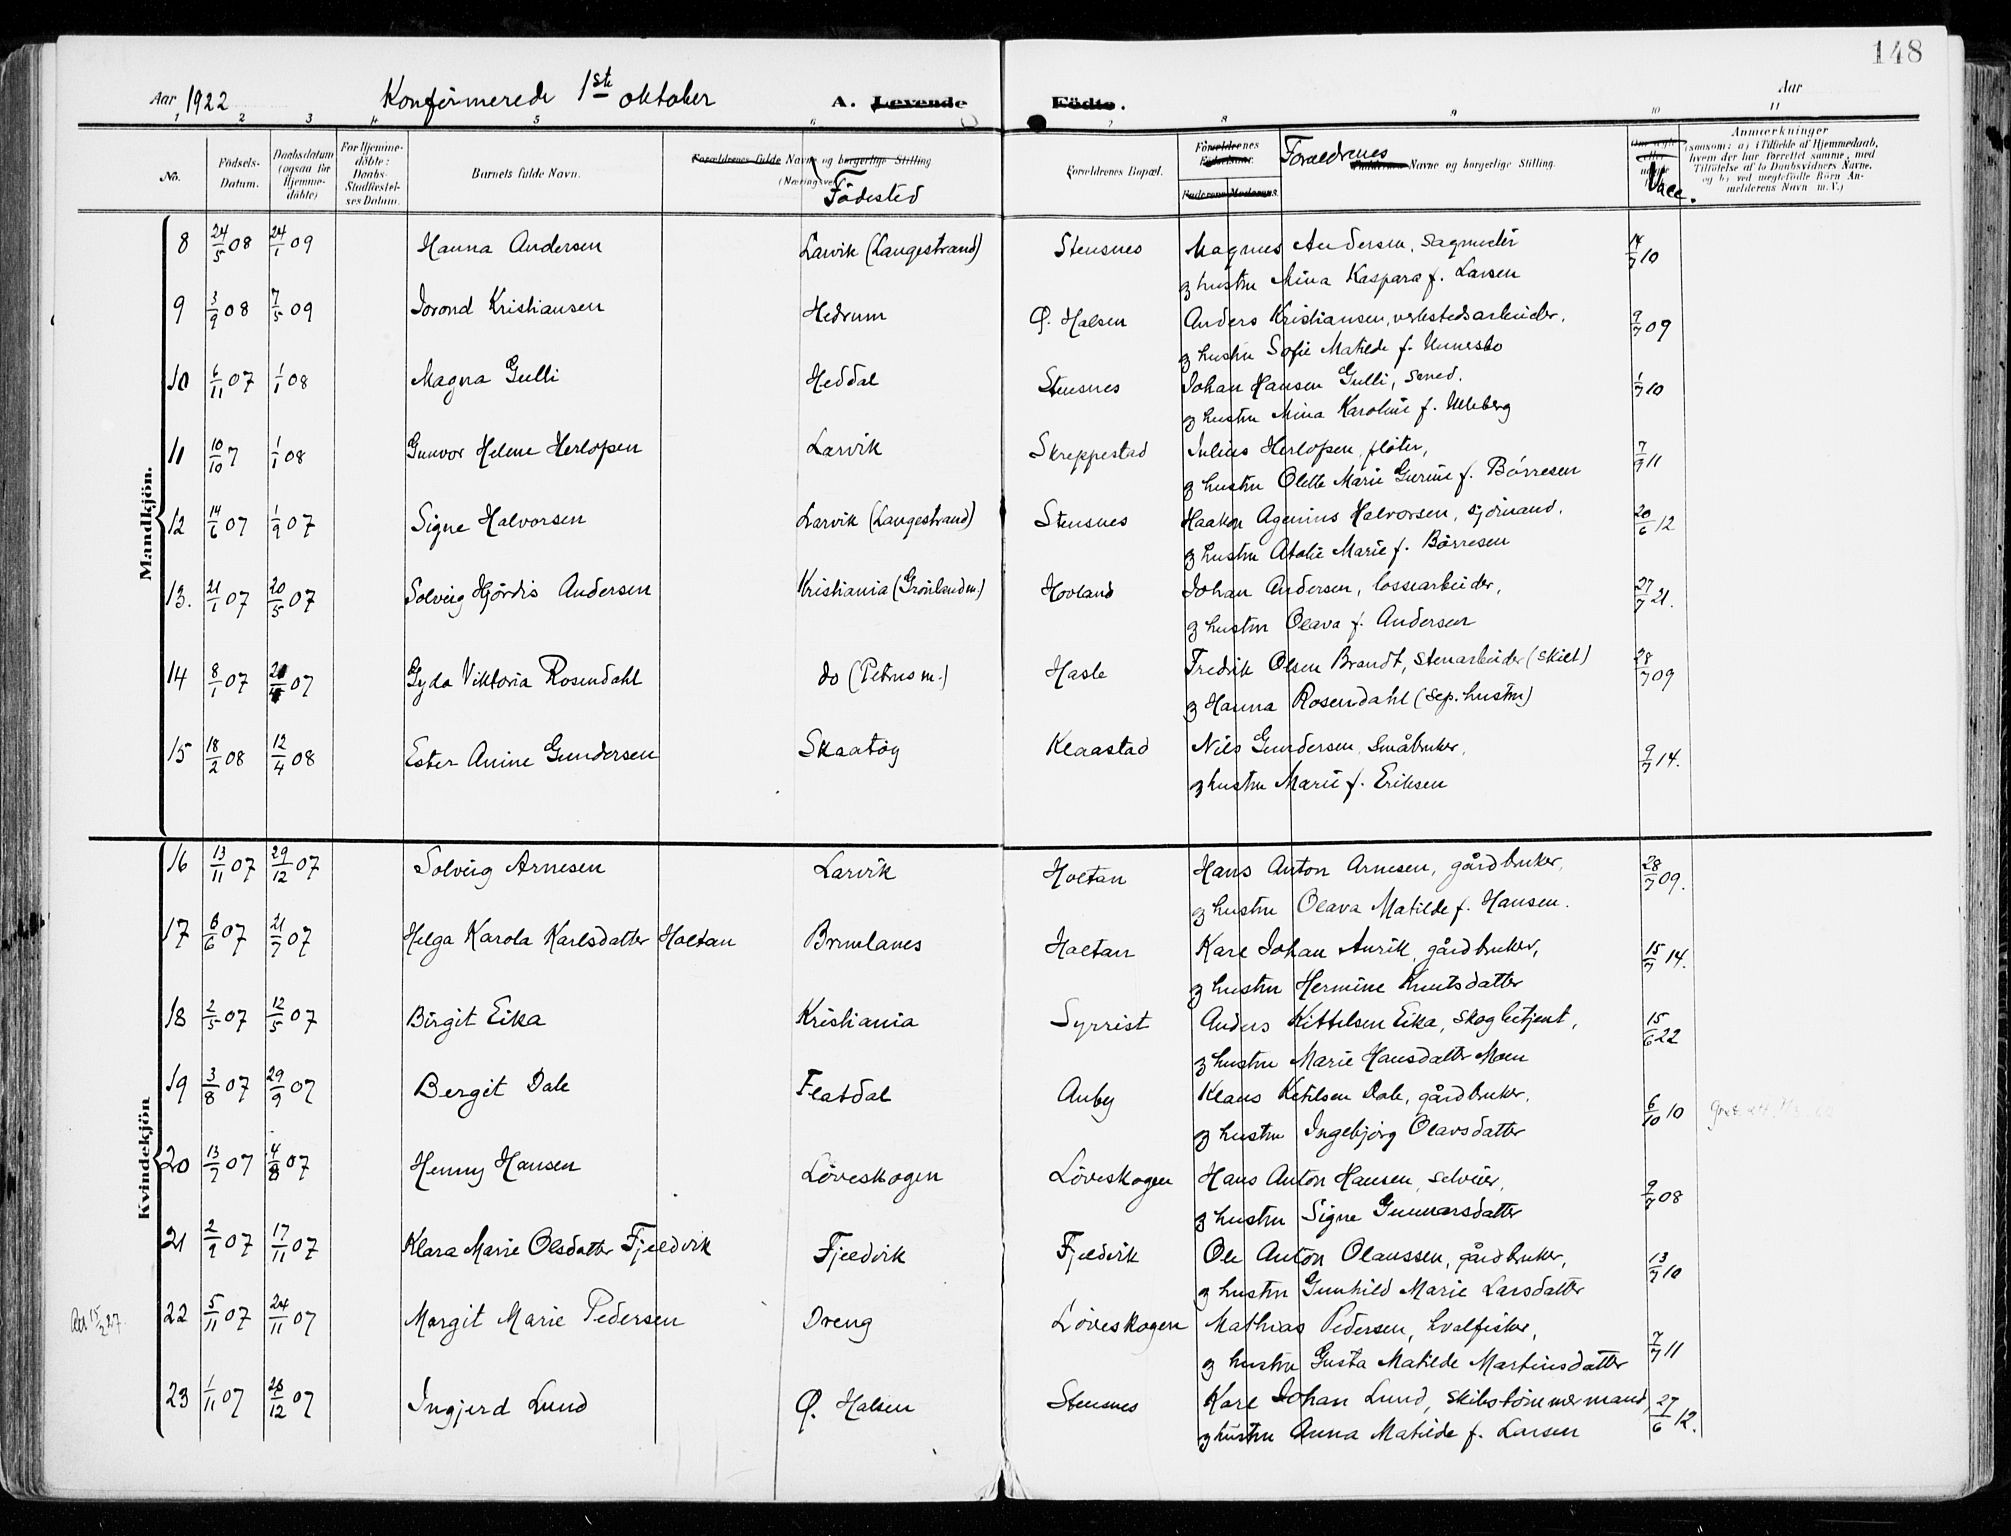 148
Aar 1922 Konfirmerede 1ste oktober A. Levende Födte. Aar
1 2 3 4 5 6 7 8 9 10 11
No. Födsels-Datum. Daabsdatum (ogsaa for Hjemmedöbte) For Hjemmedöbte: Daabs-Stadfæstelses Datum. Barnets fulde Navn. Forældrenes fulde Navne og borgerlige Stilling (Næringsvei) Fødested Forældrenes Bopæl. Forældrenes Faderens Moderens Forældrenes Navne og borgerlige Stilling. Vacc. Anmærkninger
(saasom: a) i Tilfælde af Hjemmedaab, hvem der har forrettet samme, med Tilföielse af to Daabsvidners Navne, og b) ved uegtefödte Börn Anmelderens Navn m. V.)
Mandkjön.
8 24/5 08 24/1 09 Hanna Andersen Larvik (Langestrand) Stensnes Magnus Andersen, sagmester 14/7 10
og hustru Mina Kaspara f. Larsen
9 3/9 08 7/5 09 Jorond Kristiansen Hedrum Ø. Halsen Anders Kristiansen, verkstedsarbeider, 9/7 09
og hustru Sofie Matilde f. Unnesbo
10 6/11 07 1/1 08 Magna Gulli Heddal Stensnes Johan Hansen Gulli, smed. 1/7 10
og hustru Mina Karoline f. Ulleberg
11 10/10 7 1/1 08 Gunvor Helene Herlofsen Larvik Skreppestad Julius Herlofsen, fløter, 7/9 11
og hustru Olette Marie Gurine f. Børresen
12 14/6 07 1/9 07 Signe Halvorsen Larvik (Langestrand) Stensnes Haakon Agenius Halvorsen, sjømand. 20/6 12
og hustru Atolie Marie f. Børresen
13. 21/1 07 20/5 07 Solveig Hjørdis Andersen Kristiania (Grønland m.) Hovland Johan Andersen, lossearbeider, 27/7 21.
og hustru Olava f. Andersen
14 8/1 07 07 Gyda Viktoria Rosendahl do (Petrus m.) Hasle Fredrik Olsen Brandt, stenarbeider (skilt) 28/7 09
og Hanna Rosendahl (sep. hustru)
15 18/2 08 12/4 08 Ester Anine Gundersen Skaatøy Klaastad Nils Gundersen, småbruker, 9/7 14.
og hustru Marie f. Eriksen
Kvindekjön
16 13/11 07 29/12 07 Solveig Arnesen Larvik Holtan Hans Anton Arnesen, gårdbruker, 28/7 09.
og hustru Olava Matilde f. Hansen.
17 6/6 07 21/7 07 Helga Karola Karlsdatter Holtan Brunlanes Holtan Karl Johan Aurik, gårdbruker, 15/7 14.
og hustru Hermine Knutsdatter
18 2/5 07 12/5 07 Birgit Eika Kristiania Syrrist Anders Kittelsen Eika, skogbetjent, 15/6 22
og hustru Marie Hansdatter Moen
19 3/8 07 29/9 07 Bergit Dale Flatdal Auby Klaus Ketilsen Dale, gårdbruker, 6/10 10
og hustru Ingebjørg Olavsdatter
20 13/7 07 4/8 07 Henny Hansen Løveskogen Løveskogen Hans Anton Hansen, selveier, 9/7 08
og hustru Signe Gunnarsdatter
21 2/9 07 17/11 07 Klara Marie Olsdatter Fjeldvik Fjeldvik Fjeldvik Ole Anton Olaussen, gårdbruker, 13/7 10
og hustru Gunhild Marie Larsdatter
Att 15/2 27. 22 5/11 07 24/11 07 Margit Marie Pedersen Dreng Løveskogen Mathias Pedersen, hvalfisker, 7/7 11
og hustru Gusta Matilde Martinsdatter
23 1/11 07 26/12 07 Ingjerd Lund Ø. Halsen Stensnes Karl Johan Lund, skibstømmermand, 27/6 12.
og hustru Anna Matilde f. Larsen